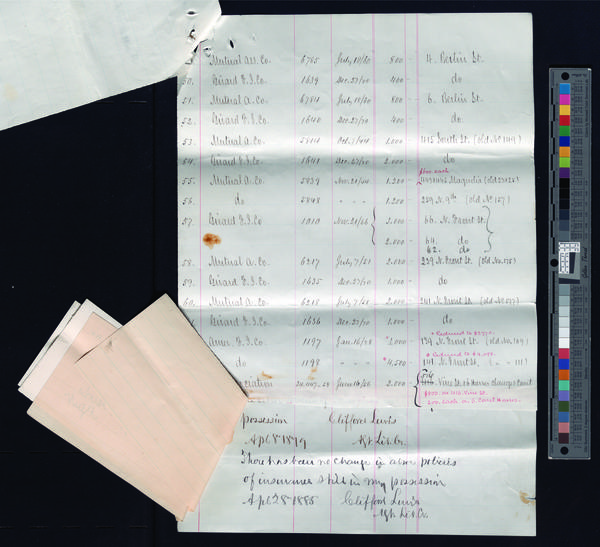 Mutual Ass. Co. 6765 July 18/50 800 - 4. Berlin St.
50. Girard F. I. Co. 1639 Dec. 27/70 400 - do
51. Mutual A. Co. 6764 July 18/50 800 - 6. Berlin St.
52. Girard F. I. Co. 1640 Dec. 27/70 400 - do
53. Mutual A. Co. 1.000 - 1115 South St. (old No 1149)
54. Girard F. I. Co. 1641 Dec. 27/70 2.000 - do
$600. each
55. Mutual A. Co. 5939 Nov. 21/44 1.200 - Magnolia
56. do 5948 " " " 1.250 259 N. 9th (old No 157)
57. Girard F. I. Co. 1010 Nov. 21/66 2.000 - 66. N. Front St.
2.000 - 64. do
62. do
58. Mutual A. Co. 6217 July 7/51 2.000 - 239 N. Front St. (old No. 175)
59. Girard F. I. Co. 1635 Dec. 27/70 1.000 - do
60. Mutual A. Co. 6218 July 7/51 2.000 - 241 N. Front St. (old No 177)
Girard F. I. Co. 1636 Dec. 27/70 1.000 - do
* Reduced to
Amer. F. I. Co. 1197 Jan. 16/28 139 N. Front St. (old No. 109)
* Reduced to
do 1198 " " " * 4.500 - 141 N. Front St. ( " " 111)
2.000 - Vine St. & 6 Houses
$800. on 1116 Vine St.
200. each on 6. Court Houses
possession Clifford Lewis
Apl. 8th 1879 Agt. Lib. Co.
There has been no change in above policies
of insurance still in my possession
Apl 28 1885 Clifford Lewis
Agt. Lib. Co.